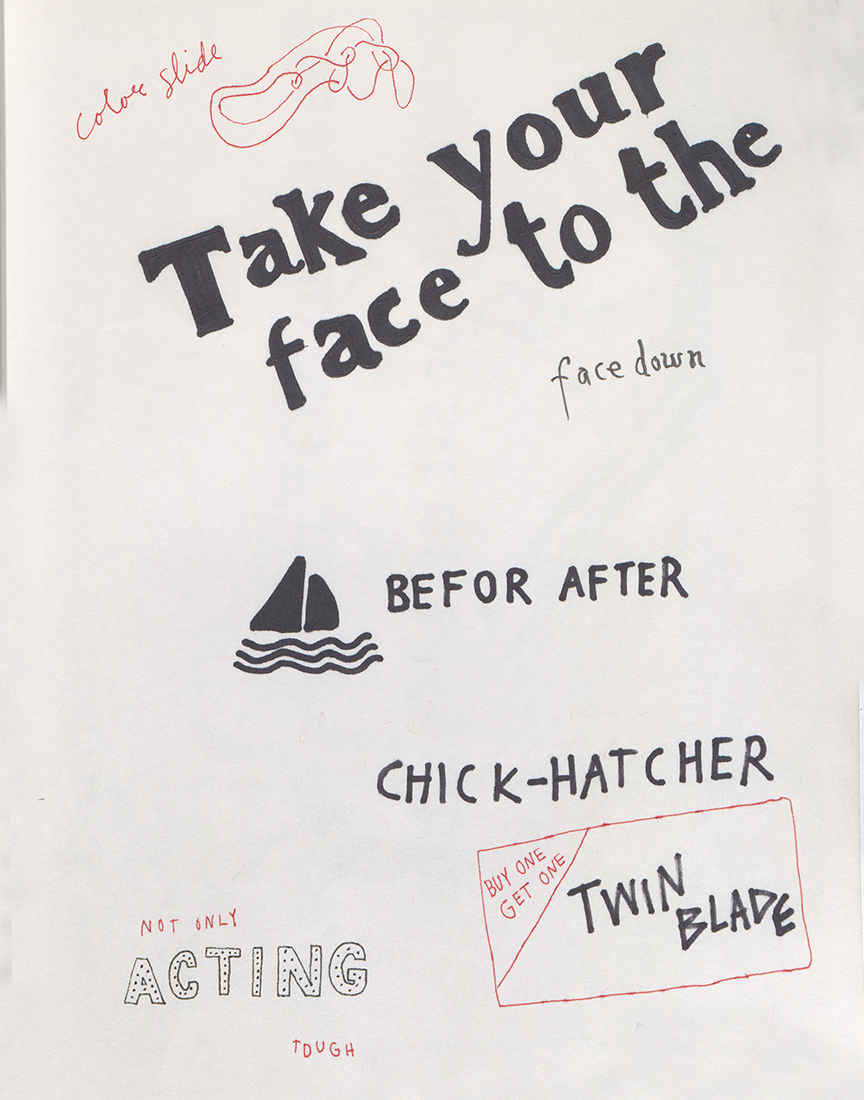 color slide
Take your
face to the
face down
BEFOR AFTER
CHICK-HATCHER
BUY ONE
GET ONE
TWIN
BLADE
NOT ONLY
ACTING
TOUGH